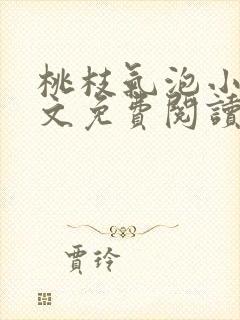 桃枝氣泡小
文免費閱讀
賈玲